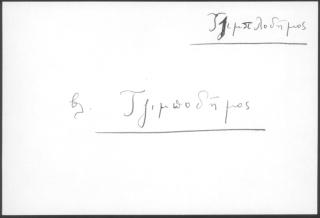 Τζιμπλοδήμος
βλ. Τζιμποδήμος